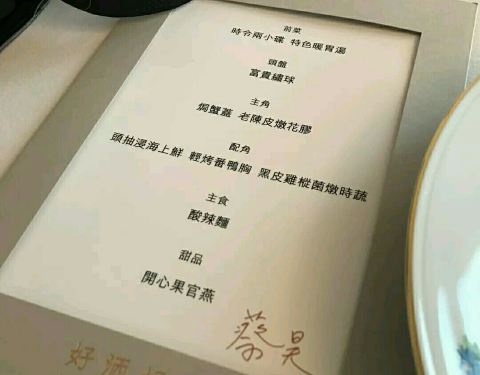 前菜
時令兩小碟 特色暖胃湯
頭盤
富貴繡球
主角
焗蟹蓋 老陳皮燉花膠
配角
頭抽浸海上鮮 輕烤番鴨胸 黑皮雞樅菌燉時蔬
主食
酸辣麵
甜品
開心果官燕
蔡昊
好酒好